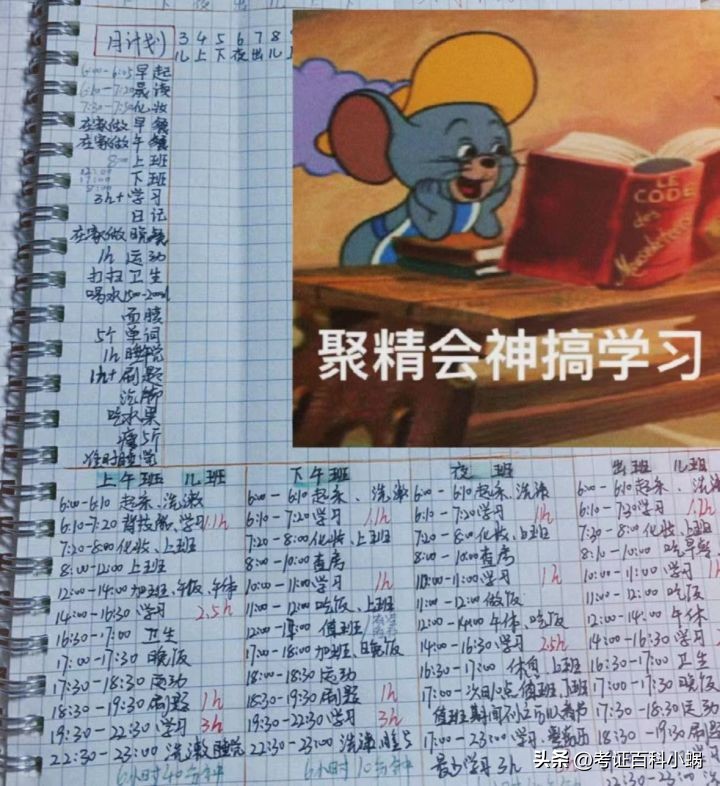 月计划 3 4 5 6 7 8
儿 上 下 夜 出 儿
6:00-6:05 早起
6:10-7:20 晨读
7:30-7:50 化妆
在家做早餐
在家做午餐
8:00 上班
12:00
17:00 下班
8:00
3h+学习
日记
在家做晚餐
1h 运动
打扫卫生
喝水1500-2000ml
面膜
5个单词
1h
1h+刷题
泡脚
吃水果
瘦5斤
准时睡觉
LE
CODE
des
聚精会神搞学习
上午班 儿班
6:00-6:10 起床、洗漱
6:10-7:20 学习 1.1h
7:20-8:00 化妆、上班
8:00-12:00 上班
12:00-14:00 加班、午饭、午休
14:00-16:30 学习 2.5h
16:30-17:00 卫生
17:00-17:30 晚饭
17:30-18:30 运动
18:30-19:30 刷题 1h
19:30-22:30 学习 3h
22:30-23:00 洗漱睡觉
6小时40分钟
下午班
6:00-6:10 起床、洗漱
6:10-7:20 学习 1.1h
7:20-8:00 化妆、上班
8:00-10:00 查房
10:00-11:00 学习 1h
11:00-12:00 吃饭、上班
12:00-17:00 值班
17:00-18:00 加班、晚饭
18:00-18:30 运动
18:30-19:30 刷题 1h
19:30-22:30 学习 3h
22:30-23:00 洗漱睡
6小时10分钟
夜班
6:00-6:10 起床、洗漱
6:10-7:20 学习 1h
7:20-8:00 化妆、上班
8:00-10:00 查房
10:00-11:00 学习 1h
11:00-12:00 做饭
12:00-14:00 午休、吃饭
14:00-16:30 学习 2.5h
16:30-17:00 休息、上班
17:00-次日10点 值班、下班
值班期间可以看书
17:00-23:00 学习、
最少学习3h
出班 儿班
6:00-6:10 起床、洗
6:10-7:20 学习 1.1h
7:30-8:00 化妆、上班
8:10-10:00 吃早餐
10:00-11:00 学习
11:00-12:00 吃饭
12:00-14:00 午休
14:00-16:30 学习
16:30-17:00 卫生
17:00-17:30 晚饭
17:30-18:30 运动
18:30-19:30 刷题
22:30-23:00 洗
头条 @考证百科小蜗